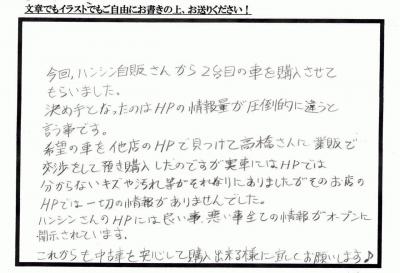 文章でもイラストでもご自由にお書きの上、お送りください!
今回、ハンシン自販さんから2台目の車を購入させて
もらいました。
決め手となったのはHPの情報量が圧倒的に違うと
言う事です。
希望の車を他店のHPで見つけて高橋さんに業販で
交渉をして頂き購入したのですが実車にはHPでは
分からないキズや汚れ等がそれなりにありましたがそのお店の
HPでは一切の情報がありませんでした。
ハンシンさんのHPには良い事、悪い事全ての情報がオープンに
開示されています。
これからも中古車を安心して購入出来る様に宜しくお願いします♪